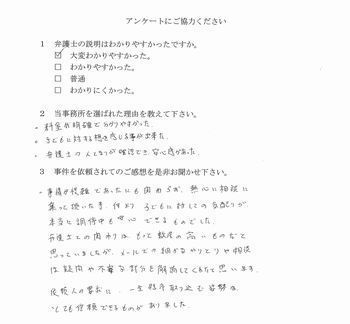 アンケートにご協力ください
1 弁護士の説明はわかりやすかったですか。
☑ 大変わかりやすかった。
☐ わかりやすかった。
☐ 普通
☐ わかりにくかった。
2 当事務所を選ばれた理由を教えて下さい。
・料金が明確で分かりやすかった
・子どもに対する想いを感じる事が出来た。
・弁護士の人となりが確認でき、安心感があった。
3 事件を依頼されてのご感想を是非お聞かせ下さい。
・事情が複雑であったにも関わらず、熱心に相談に
乗って頂いた事、何より子どもに対しての気配りが
本当に調停中も安心できるものでした。
弁護士との関わりはもっと敷居の高いものだと
思っていましたが、メールでの細かなやりとりや相談
は疑問や不安な部分を解消してくれたと思います。
依頼人の要求に、一生懸命取り込む姿勢は、
とても信頼できるものがありました。